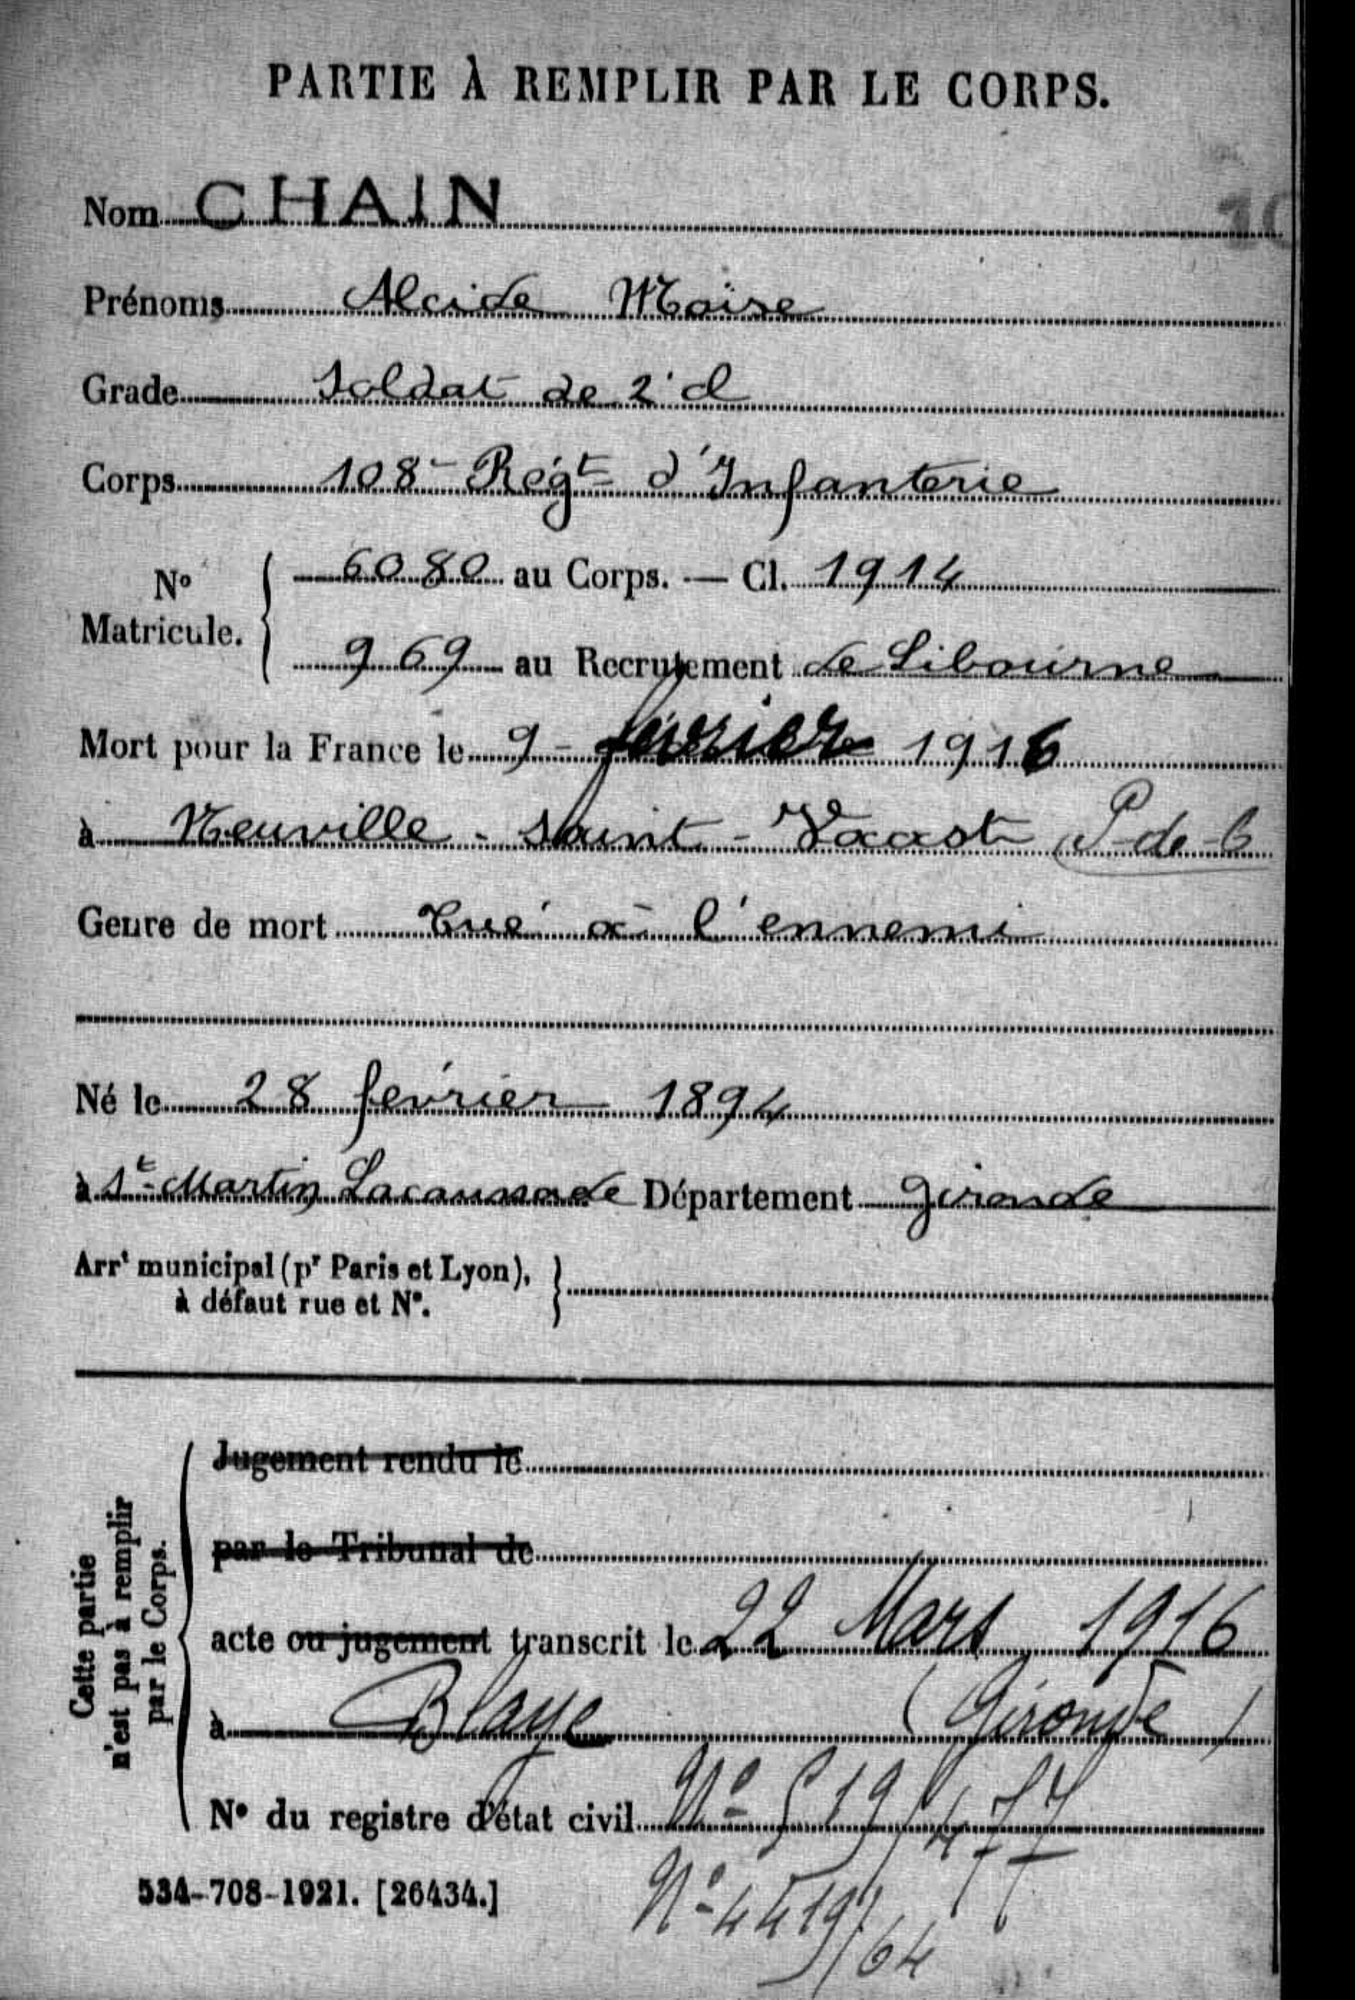 PARTIE À REMPLIR PAR LE CORPS.
10
Nom CHAIN
Prénoms Alcide Moïse
Grade Soldat de 2e cl
Corps 108e Régt d'Infanterie
No Matricule. 6080 au Corps. — Cl. 1914
969 au Recrutement de Libourne
Mort pour la France le 9 - février 1916
à Neuville - Saint - Vaast (P-de-C
Genre de mort Tué à l'ennemi
Né le 28 février 1894
à St-Martin Lacaussade Département Gironde
Arrt municipal (pr Paris et Lyon),
à défaut rue et No.
Cette partie
n'est pas à remplir
par le Corps.
Jugement rendu le
par le Tribunal de
acte ou jugement transcrit le 22 Mars 1916
à Blaye (Gironde)
No du registre d'état civil No 519/477
534-708-1921. [26434.]